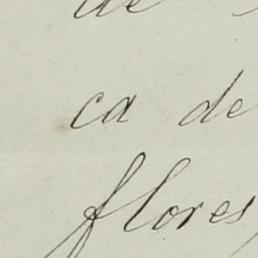 de
ca de
flores